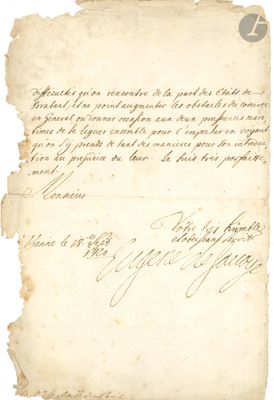 difficultés qu'on rencontre de la part des Etats de
Brabant, et ne point augmenter les obstacles du comerce
en General ou donner occasion aux deux puissances mari-
times de se liguer ensemble pour l'empecher en voyant
qu'on s'y prend de tant des manieres pour son introduc-
tion au prejudice du leur. Je suis tres parfaitte-
ment.
Monsieur
Vienne le 18.e Sept
1720
Votre tres humble
et obeissant servit
Eugene de Savoye